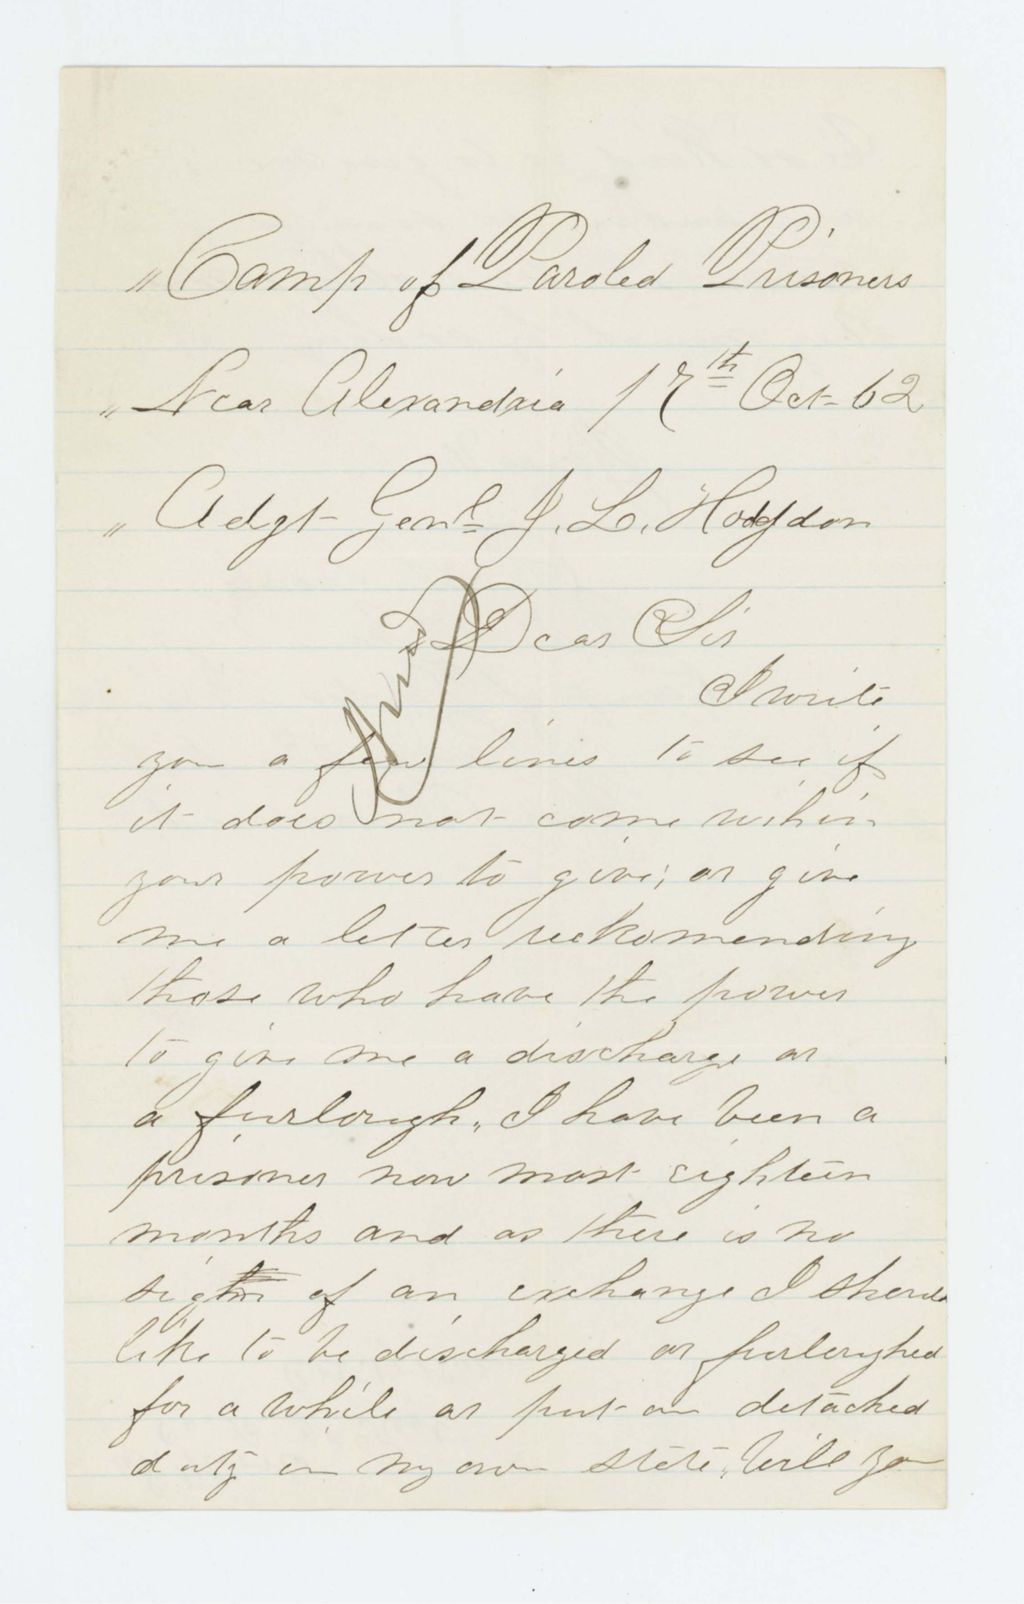 " Camp of Paroled Prisoners
" Near Alexandria 17th Oct- 62
" Adgt- Genl J. L. Hodgdon
Dear Sir
I write
you a few lines to see if
it does not come wihin
your power to give; or give
me a letter reekomending
those who have the power
to give me a discharge or
a furlough. I have been a
prisoner now most eighteen
months and as there is no
sign of an exchange I should
like to be discharged or furloughed
for a while or put on detached
duty in my own state. Will you